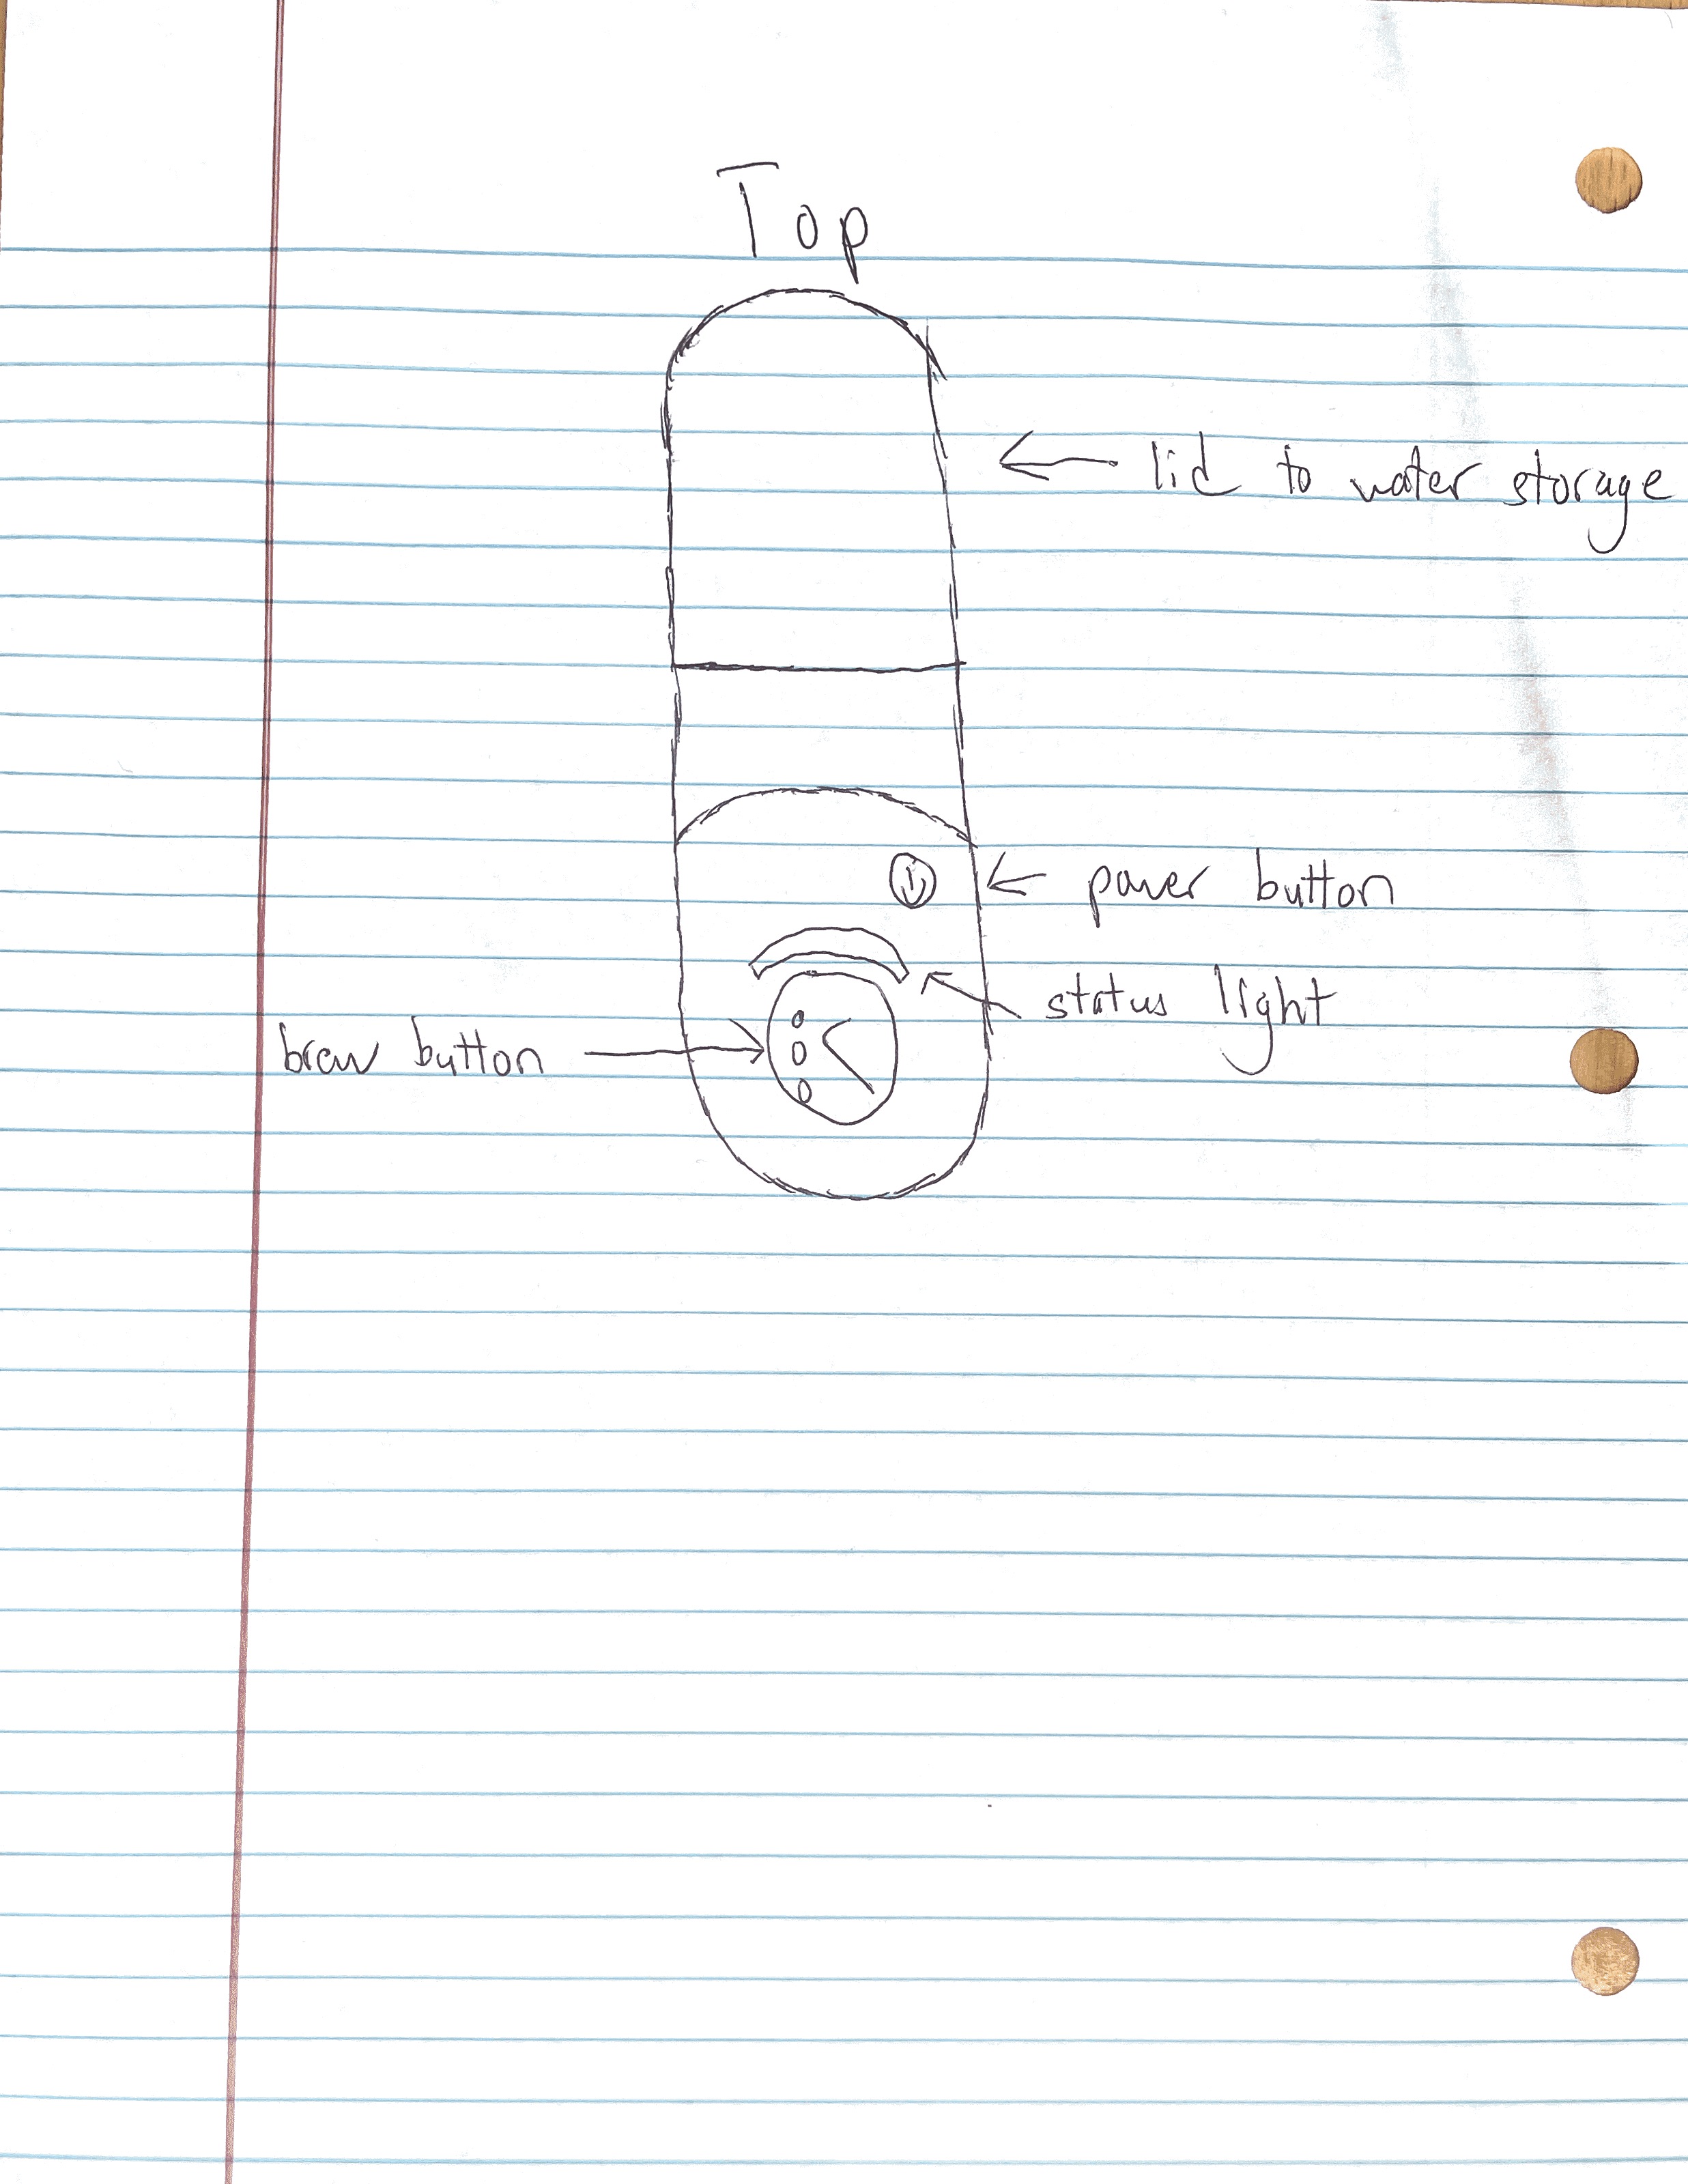 Top
lid to water storage
power button
status light
brew button